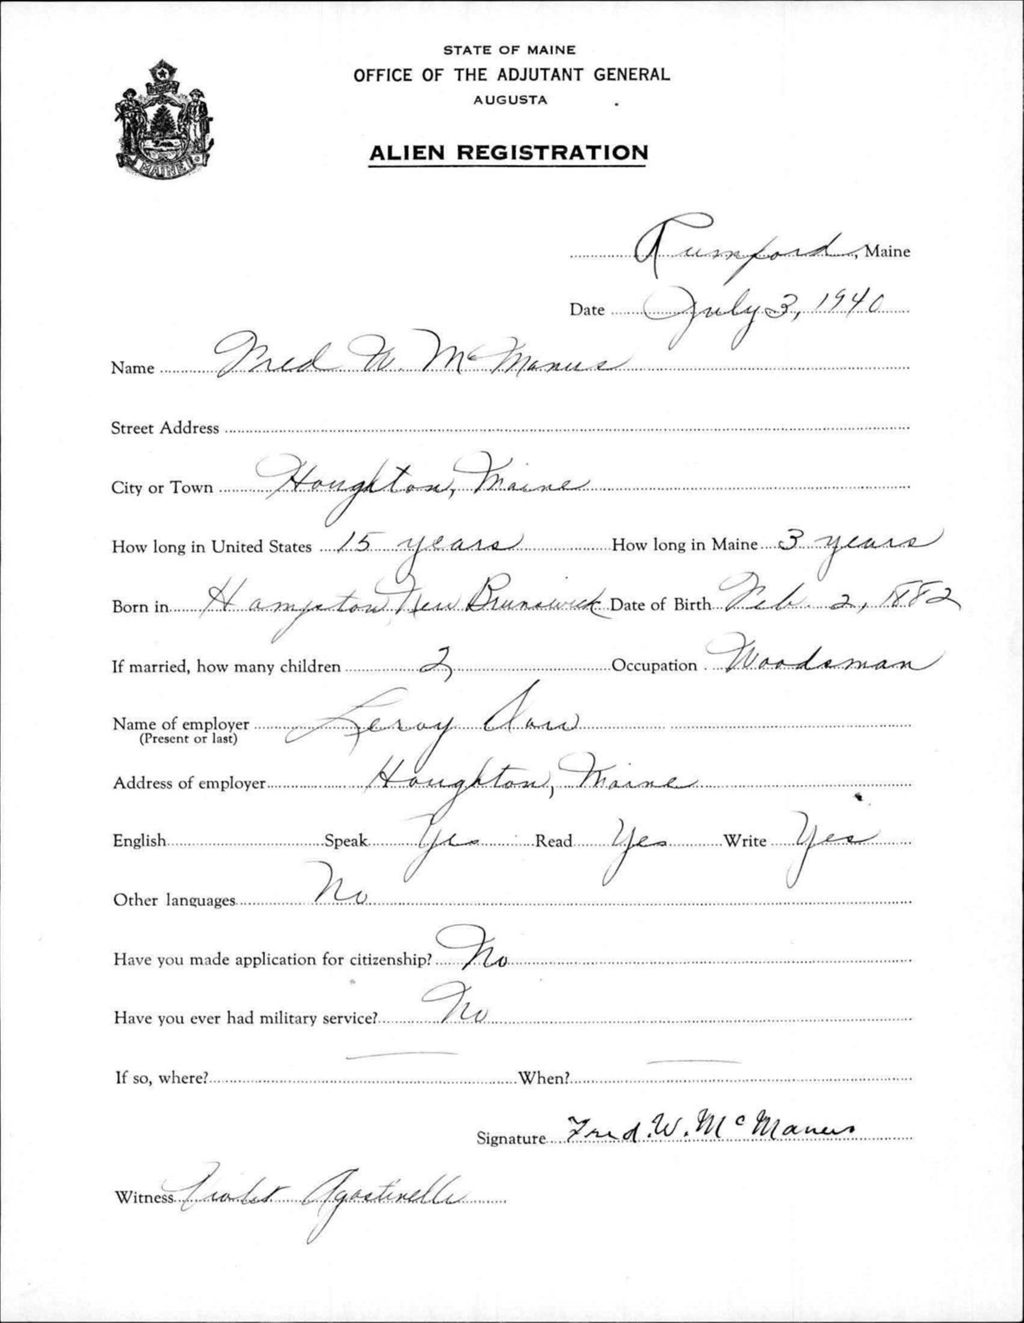 STATE OF MAINE
OFFICE OF THE ADJUTANT GENERAL
AUGUSTA
ALIEN REGISTRATION
MAINE
Rumford, Maine
Date July 3, 1940
Name Fred W. McManus
Street Address
City or Town Houghton, Maine
How long in United States 15 years How long in Maine 3 years
Born in Hampton New Brunswick Date of Birth Feb. 2, 1882
If married, how many children 2 Occupation Woodsman
Name of employer Leroy
(Present or last)
Address of employer Houghton, Maine
English Speak Yes Read Yes Write Yes
Other languages No
Have you made application for citizenship? No
Have you ever had military service? No
If so, where? — When? —
Signature Fred. W. McManus
Witness Violet Agostinelli